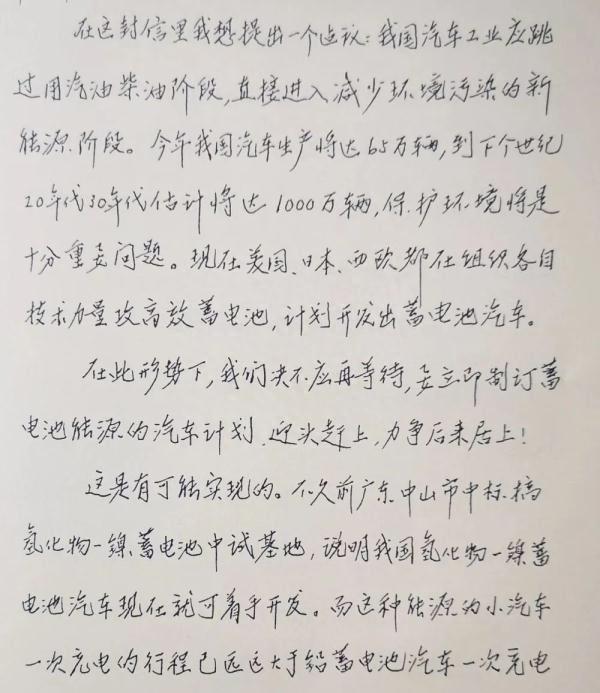 在这封信里我想提出一个建议：我国汽车工业应跳
过用汽油柴油阶段，直接进入减少环境污染的新
能源阶段。今年我国汽车生产将达65万辆，到下个世纪
20年代30年代估计将达1000万辆，保护环境将是
十分重要问题。现在美国、日本、西欧都在组织各自
技术力量攻高效蓄电池，计划开发出蓄电池汽车。
在此形势下，我们决不应再等待，要立即制订蓄
电池能源的汽车计划，迎头赶上，力争后来居上！
这是有可能实现的。不久前广东中山市中标搞
氢化物—镍蓄电池中试基地，说明我国氢化物—镍蓄
电池汽车现在就可着手开发。而这种能源的小汽车
一次充电的行程已远远大于铅蓄电池汽车一次充电